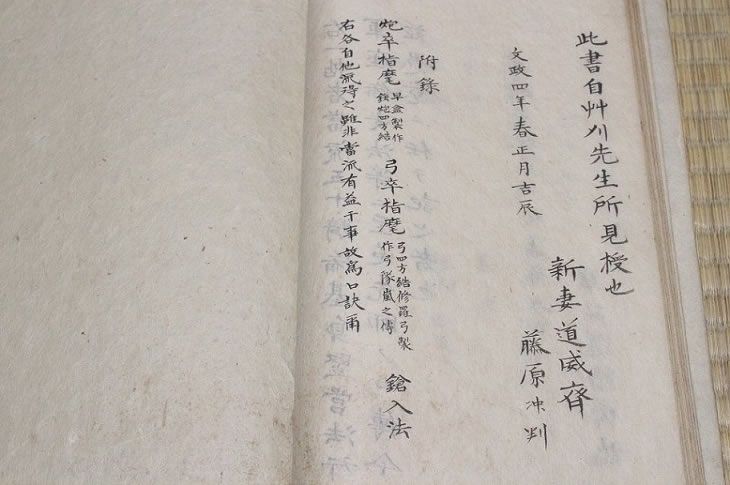 此書自艸刈先生所見授也
新妻道威齊
藤原冲判
文政四年春正月吉辰
附錄
炮卒指麾 早盒製作 鉄炮四方結 弓卒指麾 弓四方結修羅弓製 作弓隊嵐之傳 鎗入法
右各自他流得之雖非當流有益于事故寫口訣爾